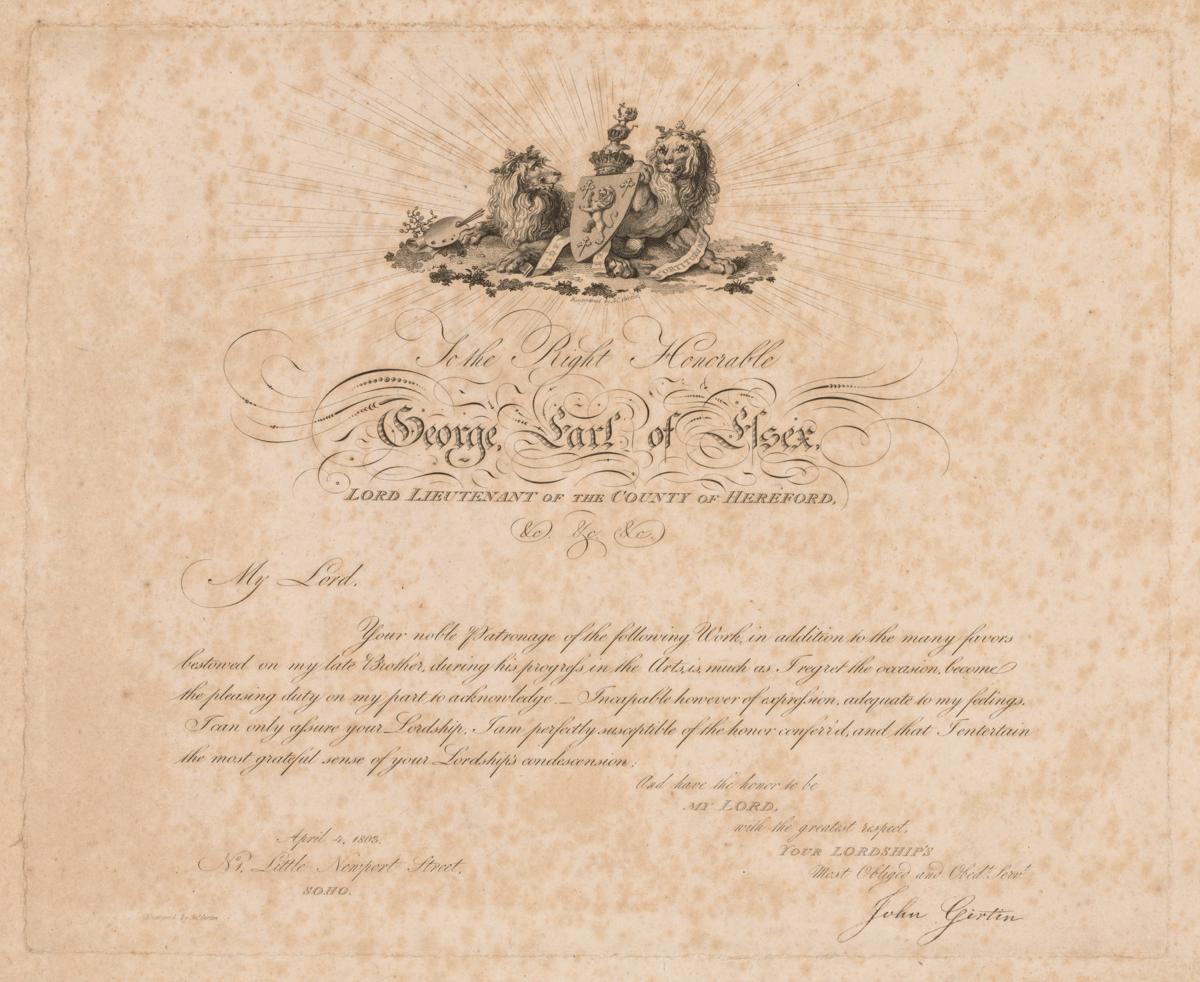 FORTITUDE
To the Right Honorable
George, Earl of Essex,
LORD LIEUTENANT OF THE COUNTY OF HEREFORD,
&c. &c. &c.
My Lord.
Your noble Patronage of the following Work, in addition to the many favors
bestowed on my late Brother, during his progress in the Arts, is, much as I regret the occasion, become
the pleasing duty on my part to acknowledge._ Incapable however of expression, adequate to my feelings,
I can only assure your Lordship, I am perfectly susceptible of the honor conferr'd, and that I entertain
the most grateful sense of your Lordship's condescension;
And have the honor to be
MY LORD,
with the greatest respect,
YOUR LORDSHIP'S
Most Obliged and Obed.t Serv.t
John Girtin
April 4, 1803.
No. 1, Little Newport Street,
SOHO.